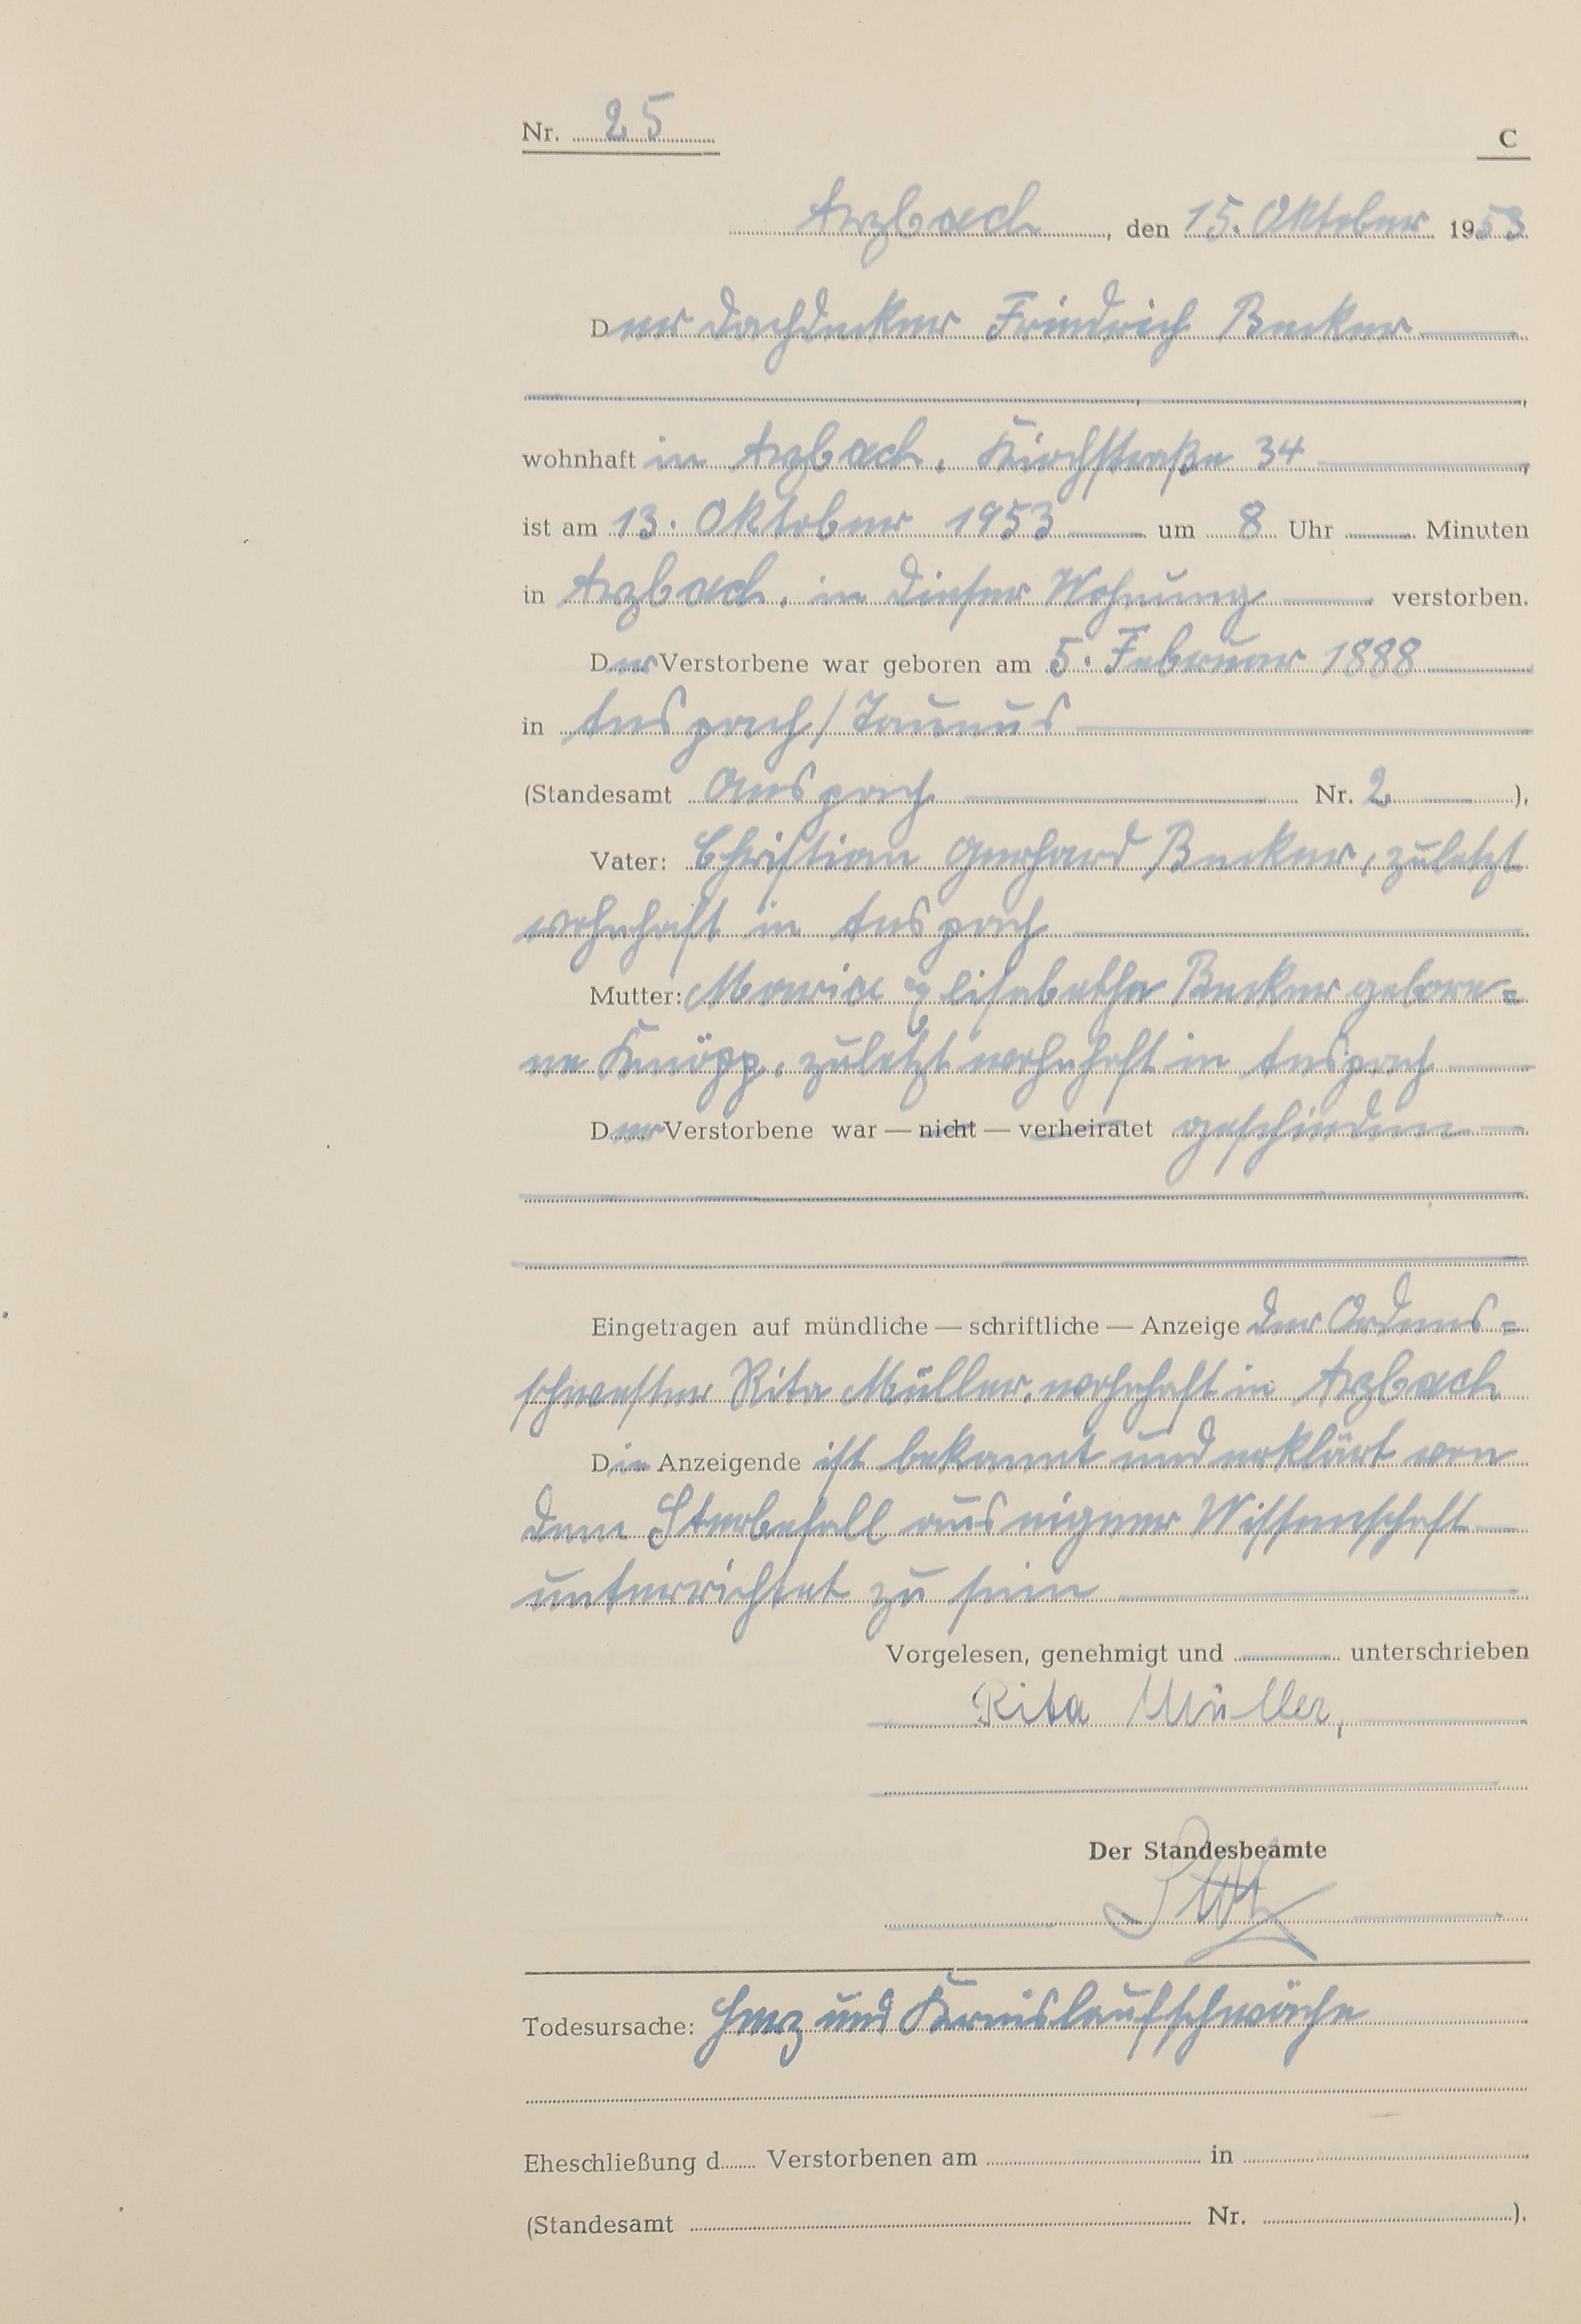 Nr. 25
C
Arzbach, den 15. Oktober 1953
Der Dachdecker Friedrich Becker
wohnhaft in Arzbach, Kirchstraße 34,
ist am 13. Oktober 1953 um 8 Uhr Minuten
in Arzbach, in dieser Wohnung verstorben.
Der Verstorbene war geboren am 5. Februar 1888
in Anspach/Taunus
(Standesamt Anspach Nr. 2),
Vater: Christian Gerhard Becker, zuletzt
wohnhaft in Anspach
Mutter: Maria Elisabetha Becker gebore=
ne Knöpp, zuletzt wohnhaft in Anspach
Der Verstorbene war — nicht — verheiratet geschieden
Eingetragen auf mündliche — schriftliche — Anzeige der Ordens=
schwester Rita Müller, wohnhaft in Arzbach
Die Anzeigende ist bekannt und erklärt von
dem Sterbefall aus eigener Wissenschaft
unterrichtet zu sein
Vorgelesen, genehmigt und unterschrieben
Rita Müller,
Der Standesbeamte
Todesursache: Herz und Kreislaufschwäche
Eheschließung d Verstorbenen am in
(Standesamt Nr. ).